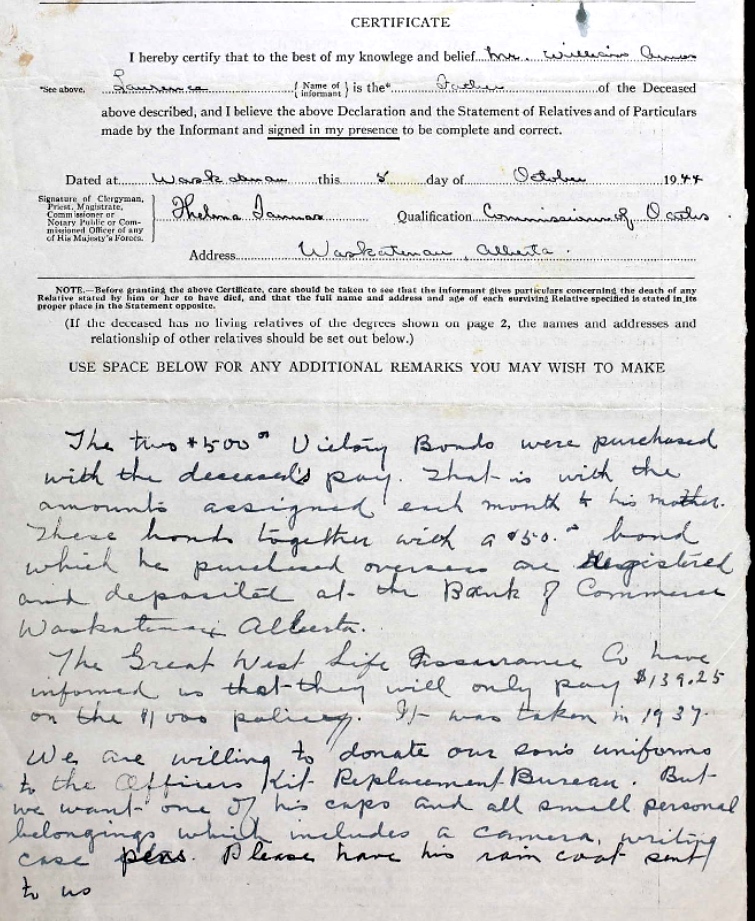 CERTIFICATE
I hereby certify that to the best of my knowlege and belief Mr. William Amos
*See above. Lawrence { Name of informant } is the* Father of the Deceased
above described, and I believe the above Declaration and the Statement of Relatives and of Particulars
made by the Informant and signed in my presence to be complete and correct.
Dated at Waskatenau this 5 day of October 1944
Signature of Clergyman,
Priest, Magistrate,
Commissioner or
Notary Public or Com-
missioned Officer of any
of His Majesty's Forces.
Thelma Qualification Commissioner of Oaths
Address Waskatenau, Alberta.
NOTE.—Before granting the above Certificate, care should be taken to see that the informant gives particulars concerning the death of any
Relative stated by him or her to have died, and that the full name and address and age of each surviving Relative specified is stated in its
proper place in the Statement opposite.
(If the deceased has no living relatives of the degrees shown on page 2, the names and addresses and
relationship of other relatives should be set out below.)
USE SPACE BELOW FOR ANY ADDITIONAL REMARKS YOU MAY WISH TO MAKE
The two $500 Victory Bonds were purchased
with the deceased's pay. That is with the
amounts assigned each month to his mother.
These bonds together with a $50. bond
which he purchased overseas are Registered
and deposited at the Bank of Commerce
Waskatenau Alberta.
The Great West Life Assurance Co have
informed us that they will only pay $139.25
on the $1000 policy. It was taken in 1937.
We are willing to donate our son's uniforms
to the Officers Kit Replacement Bureau. But
we want one of his caps and all small personal
belongings which includes a camera, writing
case pens. Please have his rain coat sent
to us